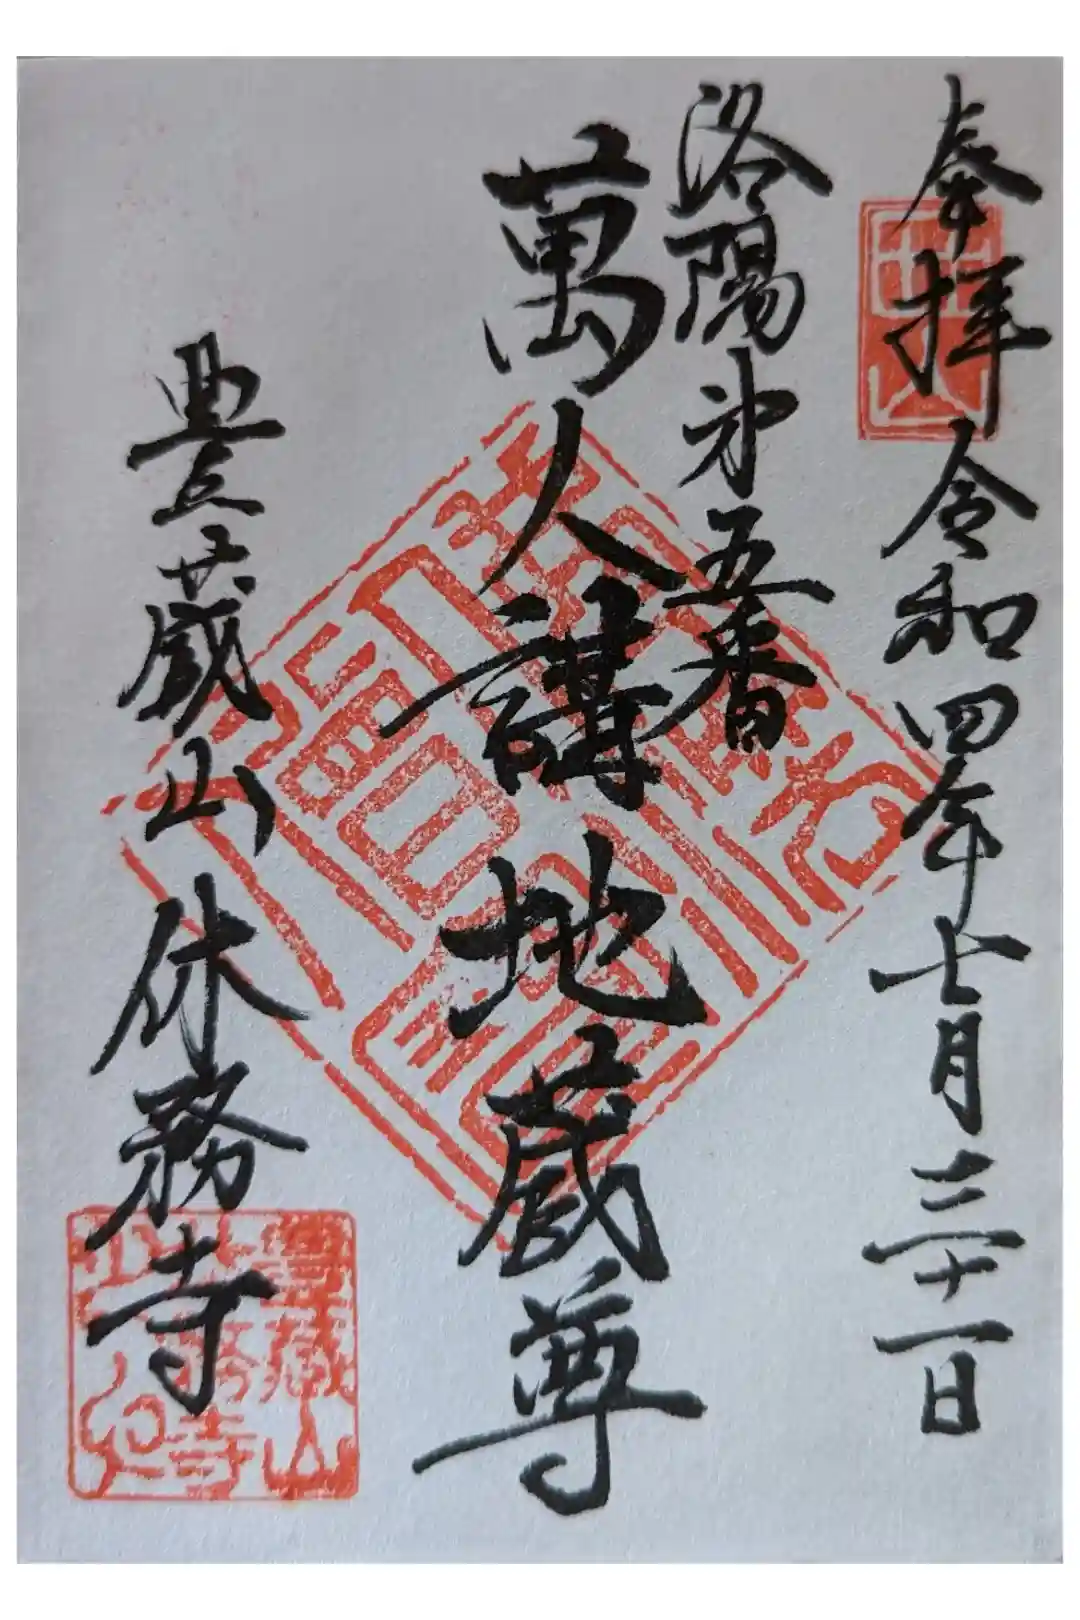 奉拝 令和四年七月三十一日
洛陽第五番
萬人講 地蔵尊
豊蔵山 休務寺